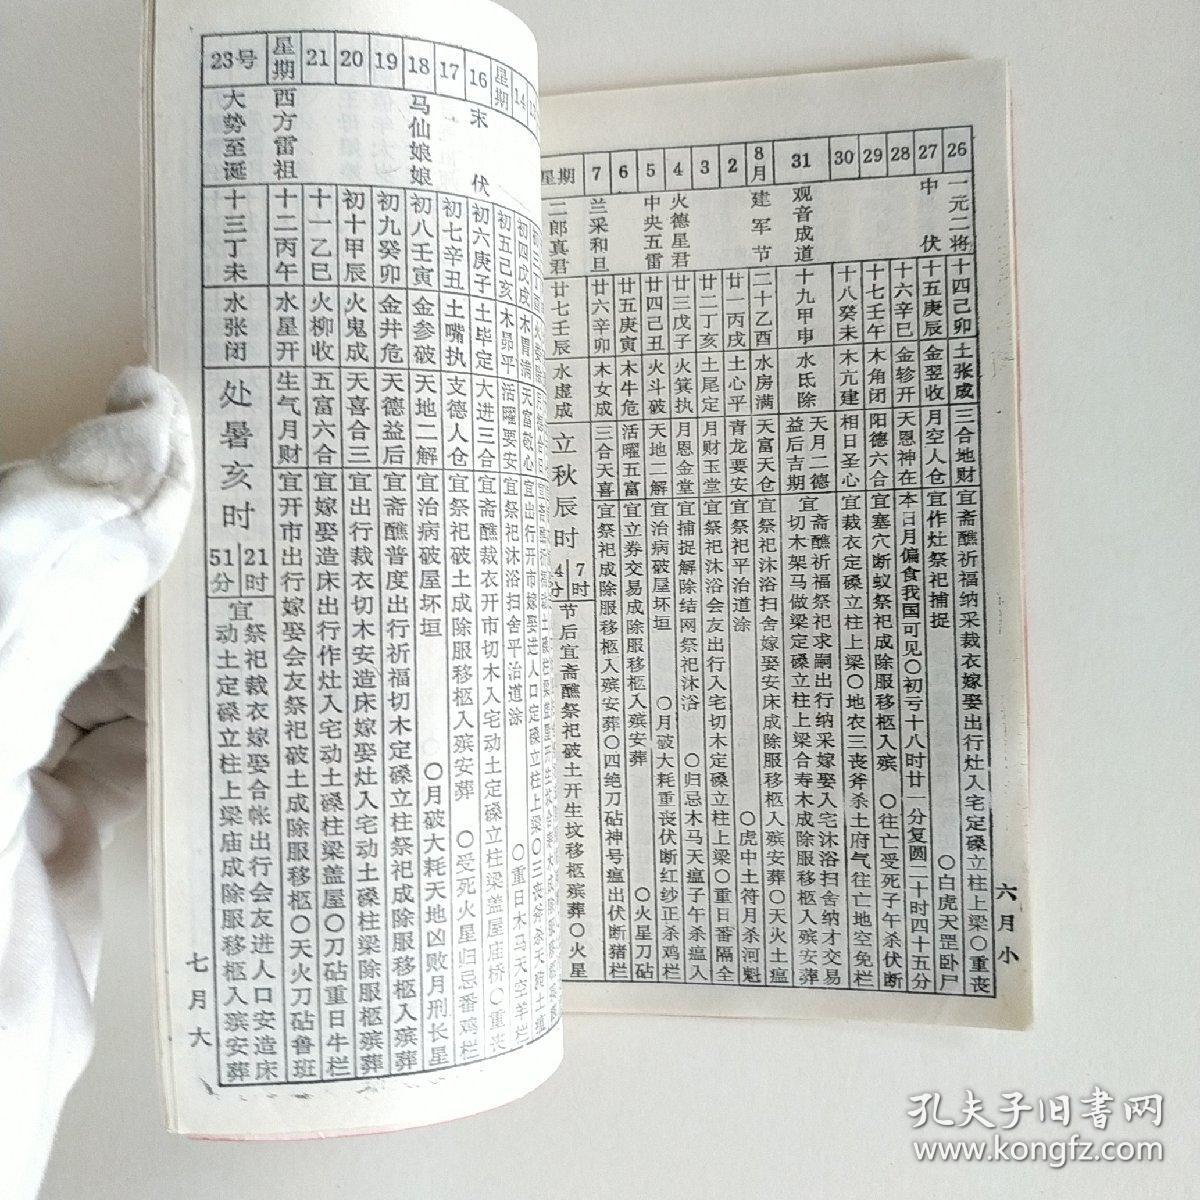 六月小
26 一元二将 十四己卯 土张成 三合地财 宜斋醮祈福纳采裁衣嫁娶出行灶入宅定磉立柱上梁〇重丧
27 中伏 十五庚辰 金翌收 月空人仓 宜作灶祭祀捕捉 〇白虎天罡卧尸
28 十六辛巳 金轸开 天恩神在 本日月偏食我国可见〇初亏十八时廿一分复圆二十时四十五分
29 十七壬午 木角闭 阳德六合 宜塞穴断蚁祭祀成除服移柩入殡 〇往亡受死子午杀伏断
30 十八癸未 木亢建 相日圣心 宜裁衣定磉立柱上梁〇地衣三丧斧杀土府气往亡地空兔栏
31 观音成道 十九甲申 水氐除 天月二德益后吉期 宜斋醮祈福祭祀求嗣出行纳采嫁娶入宅沐浴扫舍纳才交易切木架马做梁定磉立柱上梁合寿木成除服移柩入殡安葬
8月 建军节 二十乙酉 水房满 天富天仓 宜祭祀沐浴扫舍嫁娶安床成除服移柩入殡安葬〇天火土瘟
2 廿一丙戌 土心平 青龙要安 宜祭祀平治道涂 〇虎中土符月杀河魁
3 廿二丁亥 土尾定 月财玉堂 宜祭祀沐浴会友出行入宅切木定磉立柱上梁〇重日番隔全
4 火德星君 廿三戊子 火箕执 月恩金堂 宜捕捉解除结网祭祀沐浴 〇归忌木马天瘟子午杀瘟入
5 中央五雷 廿四己丑 火斗破 天地二解 宜治病破屋坏垣 〇月破大耗重丧伏断红纱正杀鸡栏
6 廿五庚寅 木牛危 活曜五富 宜立券交易成除服移柩入殡安葬 〇火星刀砧
7 兰采和旦 廿六辛卯 木女成 三合天喜 宜祭祀成除服移柩入殡安葬〇四绝刀砧神号瘟出伏断猪栏
星期 二郎真君 廿七壬辰 水虚成 立秋辰时 7时4分 节后宜斋醮祭祀破土开生坟移柩殡葬〇火星
14 初四戊戌 木胃满 天富敬心 宜出行开市嫁娶进人口定磉立柱上梁〇三丧斧杀天狗土瘟
星期 初五己亥 木昴平 活曜要安 宜祭祀沐浴扫舍平治道涂 〇重日木马天空羊栏
16 末伏 初六庚子 土毕定 大进三合 宜斋醮裁衣开市切木入宅动土定磉立柱梁盖屋庙桥〇重丧
17 初七辛丑 土嘴执 支德人仓 宜祭祀破土成除服移柩入殡安葬 〇受死火星归忌番鸡栏
18 马仙娘娘 初八壬寅 金参破 天地二解 宜治病破屋坏垣 〇月破大耗天地凶败月刑长星
19 初九癸卯 金井危 天德益后 宜斋醮普度出行祈福切木定磉立柱祭祀成除服移柩入殡葬
20 初十甲辰 火鬼成 天喜合三 宜出行裁衣切木安造床嫁娶灶入宅动土磉柱梁除服柩殡葬
21 十一乙巳 火柳收 五富六合 宜嫁娶造床出行作灶入宅动土磉柱梁盖屋〇刀砧重日牛栏
星期 西方雷祖 十二丙午 水星开 生气月财 宜开市出行嫁娶会友祭祀破土成除服移柩〇天火刀砧鲁班
23号 大势至诞 十三丁未 水张闭 处暑亥时 21时51分 宜祭祀裁衣嫁娶合帐出行会友进人口安造床动土定磉立柱上梁庙成除服移柩入殡安葬
七月大
孔夫子旧书网
www.kongfz.com